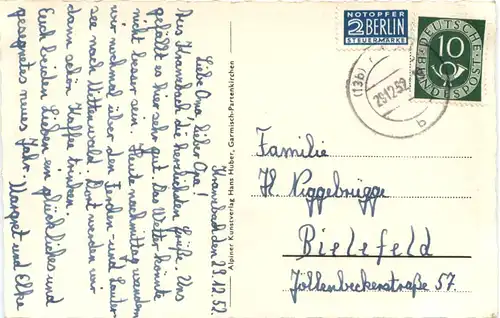 Krannbach den 29.12.52
Liebe Oma, lieber Opa!
Aus Krannbach die herzlichsten Grüße. Uns
gefällt es hier sehr gut. Das Wetter könnte
nicht besser sein. Heute nachmittag wandern
wir nochmal über den Ferchen- und Lauter-
see nach Mittenwald. Dort werden wir
dann schön Kaffee trinken.
Euch beiden Lieben ein glückliches und
gesegnetes neues Jahr. Margret und Elke
Alpiner Kunstverlag Hans Huber, Garmisch-Partenkirchen
NOTOPFER
2 BERLIN
STEUERMARKE
DEUTSCHE
BUNDESPOST
10
(13b)
29.12.52
b
Familie
H. Niggebrügge
Bielefeld
Jöllenbeckerstraße 57.